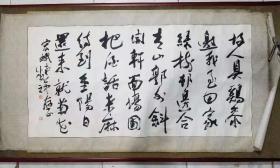 故人具鷄黍
邀我至田家
綠樹邨邊合
青山郭外斜
開軒面場圃
把酒話桑麻
待到重陽日
還來就菊花